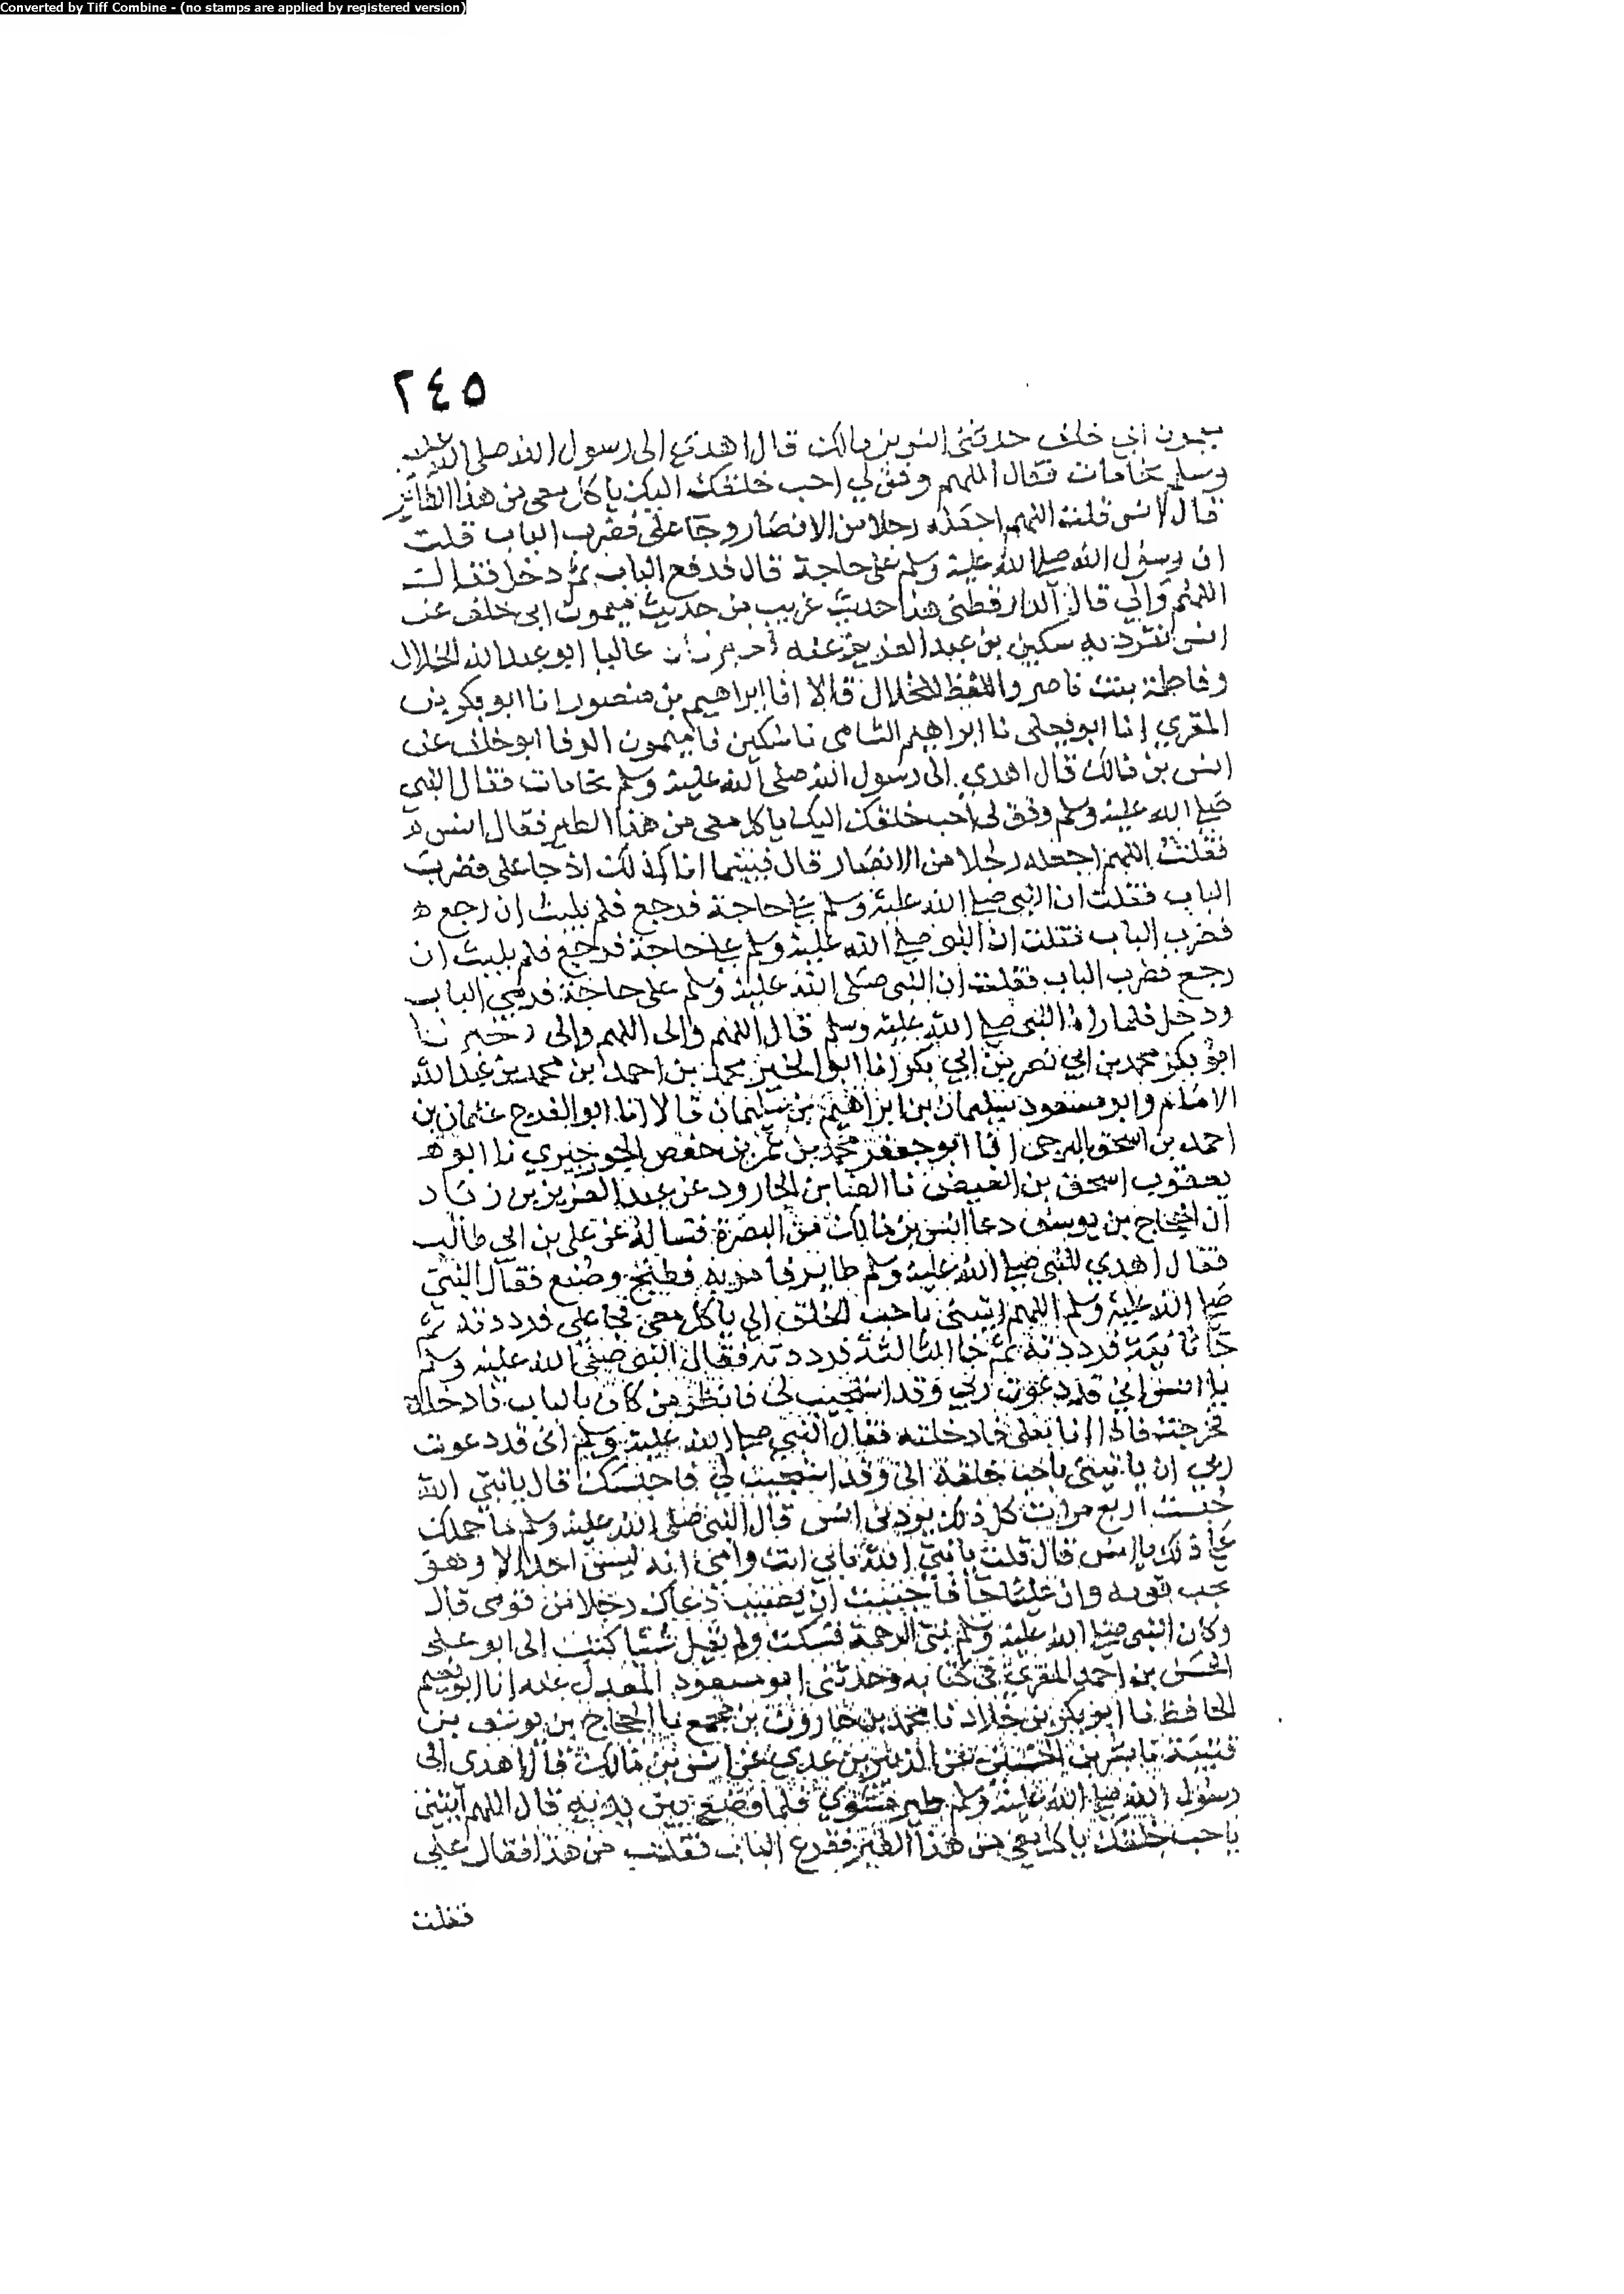 Converted by Tiff Combine - (no stamps are applied by registered version)
٢٤٥
ميمون ابي خلف حدثني انس بن مالك قال اهدي الى رسول الله صلى الله عليه
وسلم نحامات فقال اللهم وفق لي احب خلقك اليك ياكل معي من هذا الطائر
قال انس قلت اللهم اجعله رجلا من الانصار وجا علي فضرب الباب قلت
ان رسول الله صلى الله عليه وسلم على حاجة قال فدفع الباب ثم دخل فقال
اللهم والي قال الدارقطني هذا حديث غريب من حديث ميمون ابي خلف عن
انس تفرد به سكين بن عبد العزيز عنه عاليا ابو عبد الله الخلال
وفاطمة بنت ناصر واللفظ للخلال قالا انا ابراهيم بن منصور انا ابو بكر بن
المقري انا ابو يعلى نا ابراهيم الشامي نا سكين نا ميمون الرفا ابو خلف عن
انس بن مالك قال اهدي الى رسول الله صلى الله عليه وسلم نحامات فقال النبي
صلى الله عليه وسلم وفق لي احب خلقك اليك ياكل معي من هذا الطير فقال انس
فقلت اللهم اجعله رجلا من الانصار قال فبينما انا كذلك اذ جا علي فضرب
الباب فقلت ان النبي صلى الله عليه وسلم على حاجة فرجع فلم يلبث ان رجع
فضرب الباب فقلت ان النبي صلى الله عليه وسلم على حاجة فرجع فلم يلبث ان
رجع فضرب الباب فقلت ان النبي صلى الله عليه وسلم على حاجة فرمي الباب
ودخل فلما راه النبي صلى الله عليه وسلم قال اللهم والى اللهم والى اخبرنا
ابو بكر محمد بن ابي نصر بن ابي بكر انا ابو الخير محمد بن احمد بن محمد بن عبد الله
الامام وابو مسعود سليمان بن ابراهيم بن سليمان قالا انا ابو الفرج عثمان بن
احمد بن اسحق البرجي انا ابو جعفر محمد بن عمر بن حفص الجورجيري نا ابو
يعقوب اسحق بن الفيض نا المضا بن الجارود عن عبد العزيز بن زياد
ان الحجاج بن يوسف دعا انس بن مالك من البصرة فساله عن علي بن ابي طالب
فقال اهدي للنبي صلى الله عليه وسلم طاير فامر به فطبخ وصنع فقال النبي
صلى الله عليه وسلم اللهم ايتيني باحب الخلق الي ياكل معي فجا علي فرددته ثم
جا ثانية فرددته ثم جا الثالثة فرددته فقال النبي صلى الله عليه وسلم
يا انس اني قد دعوت ربي وقد استجيب لي فانظر من كان بالباب فادخله
فخرجت فاذا انا بعلي فادخلته فقال النبي صلى الله عليه وسلم اني قد دعوت
ربي ان ياتيني باحب خلقه الي وقد استجيب لي فما حبسك قال يا نبي الله
جئت اربع مرات كل ذلك يردني انس قال النبي صلى الله عليه وسلم ما حملك
على ذلك يا انس قال قلت يا نبي الله بابي انت وامي انه ليس احد الا وهو
يحب قومه وان عليا جا فاحببت ان يصيب دعاك رجلا من قومي قال
وكان النبي صلى الله عليه وسلم نبي الرحمة فسكت ولم يقل شيا كتب الي ابو علي
الحسن بن احمد المقري في كتابه وحدثني ابو مسعود المعدل عنه انا ابو نعيم
الحافظ نا ابو بكر بن خلاد نا محمد بن هارون بن مجمع نا الحجاج بن يوسف بن
قتيبة نا بشر بن الحسين عن الزبير بن عدي عن انس بن مالك قال اهدي الى
رسول الله صلى الله عليه وسلم طير مشوي فلما وضع بين يديه قال اللهم ايتني
باحب خلقك ياكل معي من هذا الطير فقرع الباب فقلت من هذا فقال علي
فقلت